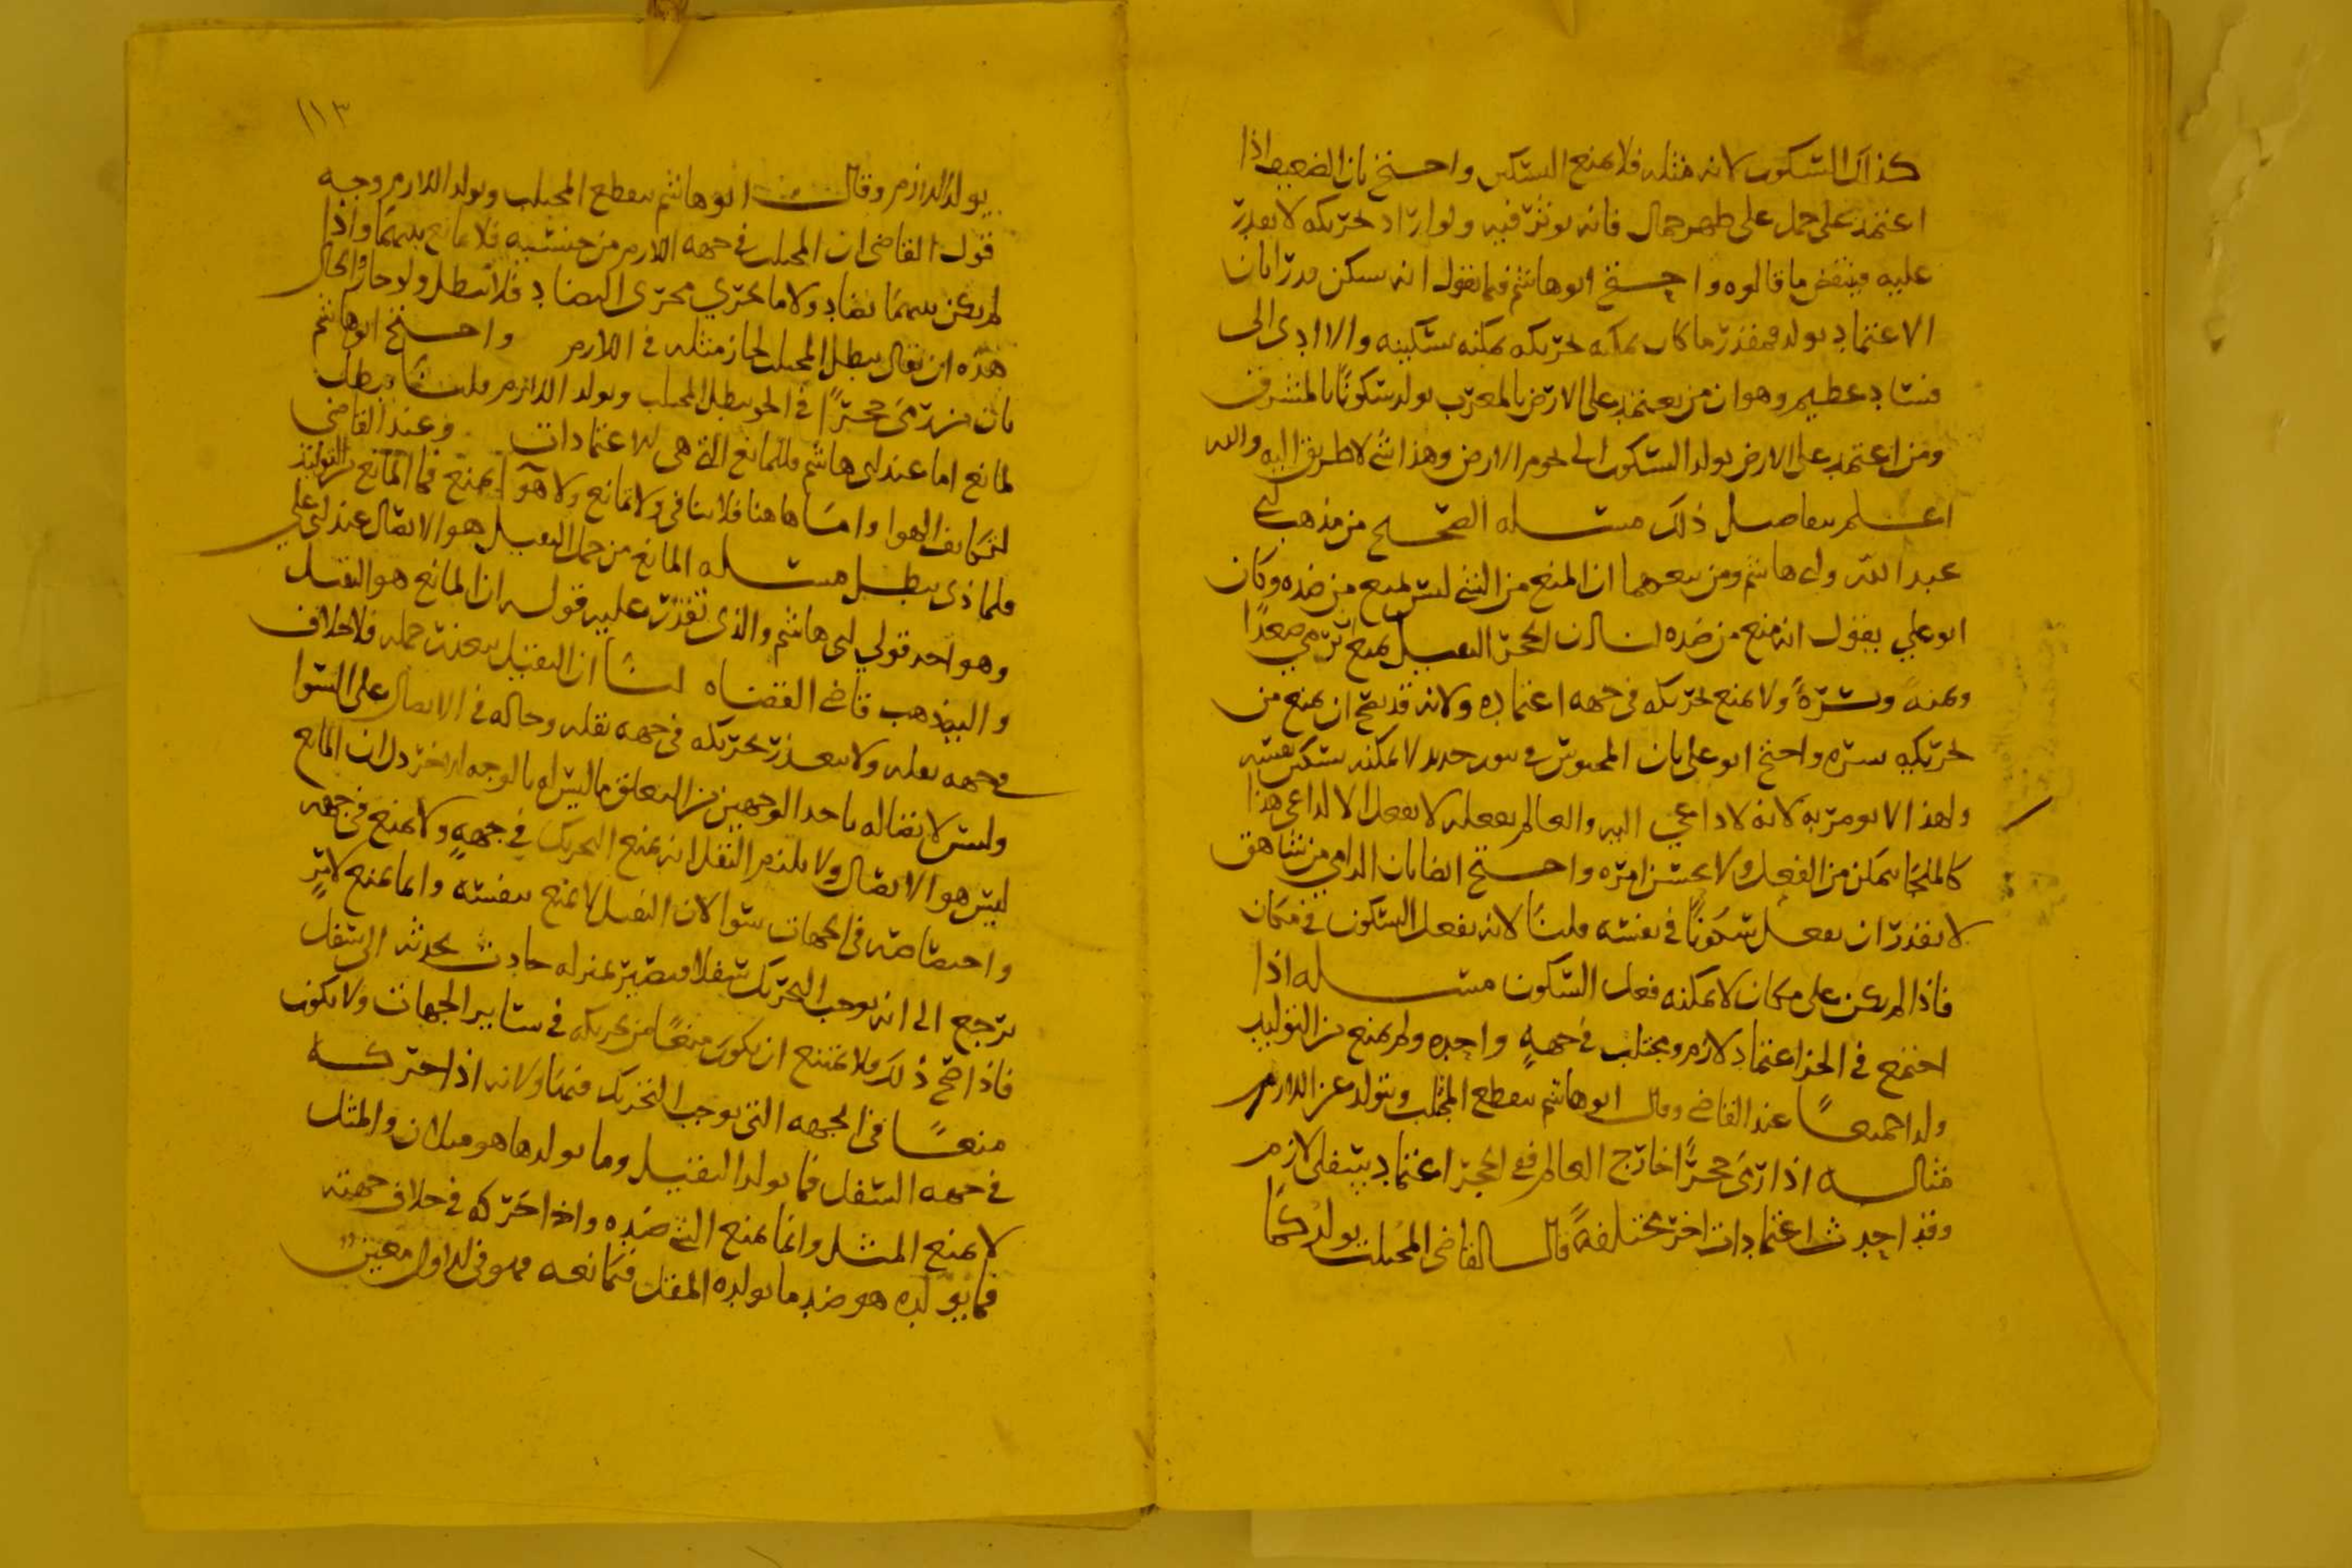 كذلك السكون لانه مثله فلا يمنع السكون واحتج بان الضعيف اذا
اعتمد على حمل على ظهر حمال فانه يوثر فيه ولو اراد تحريكه لا يقدر
عليه فينتقض ما قالوه واحتج ابو هاشم فيما نقول انه يسكن قدرا بان
الاعتماد يولد فبقدر ما كان يمكنه تحريكه يمكنه تسكينه والا ادى الى
فساد عظيم وهو ان من يعتمد على الارض بالمغرب يولد سكونا بالمشرق
ومن اعتمد على الارض يولد السكون الى تخوم الارض وهذا شي لا طريق اليه والله
اعلم بتفاصيل ذلك مسله الصحيح من مذهب
عبد الله وابي هاشم ومن تبعهما ان المنع من الشي ليس بمنع من ضده وكان
ابو علي يقول انه منع من ضده لنا ان الحجر الثقيل يمنع صعدا
ويمنة ويسرة ولا يمنع تحريكه في جهه اعتماده ولانه قد يصح ان يمنع من
تحريكه يسره واحتج ابو علي بان المحبوس في حديد لا يمكنه تسكين نفسه
ولهذا لا يومر به لانه لا داعي اليه والعالم بفعله لا يفعل الا لداعي هذا
كالملجا يتمكن من الفعل ولا يحسن امره واحتج ايضا بان الرامي من شاهق
لا يقدر ان يفعل سكونا في نفسه قلنا لانه يفعل السكون في مكان
فاذا لم يكن على مكان لا يمكنه فعل السكون مسله اذا
اجتمع في الحجر اعتماد لازم ومجتلب في جهه واحده ولم يمنع من التوليد
ولدا جميعا عند القاضي وقال ابو هاشم ينقطع المجتلب ويتولد عن اللازم
مثاله اذا رمى حجرا خارج العالم ففي الحجر اعتماد سفلي لازم
وقد احدث اعتمادات اخر مختلفة قال القاضي المجتلب يولد كما
١١٣
يولد اللازم وقال ابو هاشم ينقطع المجتلب ويولد اللازم وجه
قول القاضي ان المجتلب في جهه اللازم من جنسه فلا مانع بينهما واذا
لم يكن بينهما تضاد ولا ما يجري مجرى التضاد فلا يبطل ولو جاز والحال
هذه ان يقال يبطل المجتلب لجاز مثله في اللازم واحتج ابو هاشم
بان من رمى حجرا في الجو يبطل المجتلب ويولد اللازم قلنا يبطل
لمانع اما عند ابي هاشم فللمانع الذي هي الاعتمادات وعند القاضي
لتكاثف الهوا واما هاهنا فلا تنافي ولا تمانع ولا هوا يمنع فما المانع من التوليد
فلماذا يبطل مسله المانع من حمل الثقيل هو الاتصال عند ابي علي
وهو احد قولي ابي هاشم والذي تقرر عليه قوله ان المانع هو الثقل
واليه ذهب قاضي القضاه لنا ان الثقيل يتعذر حمله فلا خلاف
جهه ثقله ولا يتعذر تحريكه في جهه ثقله وحاله في الاتصال على السوا
وليس لاتصاله باحد الوجهين من التعلق ما ليس له بالوجه الاخر دل ان المانع
ليس هو الاتصال ولا يلزم الثقل انه يمنع التحريك في جهه ولا يمنع في جهه
واختصاصه في الجهات سوا لان الثقيل لا يمنع بنفسه وانما يمنع لامر
يرجع الى انه يوجب التحريك سفلا فيصير بمنزله حادث يحدثه الى سفل
فاذا صح ذلك فلا يمتنع ان يكون منعا من تحريكه في ساير الجهات ولا يكون
منعا في الجهه التي يوجب التحريك فيها ولانه اذا حركه
في جهه السفل فما يولد الثقيل وما يولدها هو مثلان والمثل
لا يمنع المثل وانما يمنع الشي ضده واذا حركه في خلاف جهته
فما يولده هو ضد ما يولده الثقل فيمانعه فهو في الاول معين